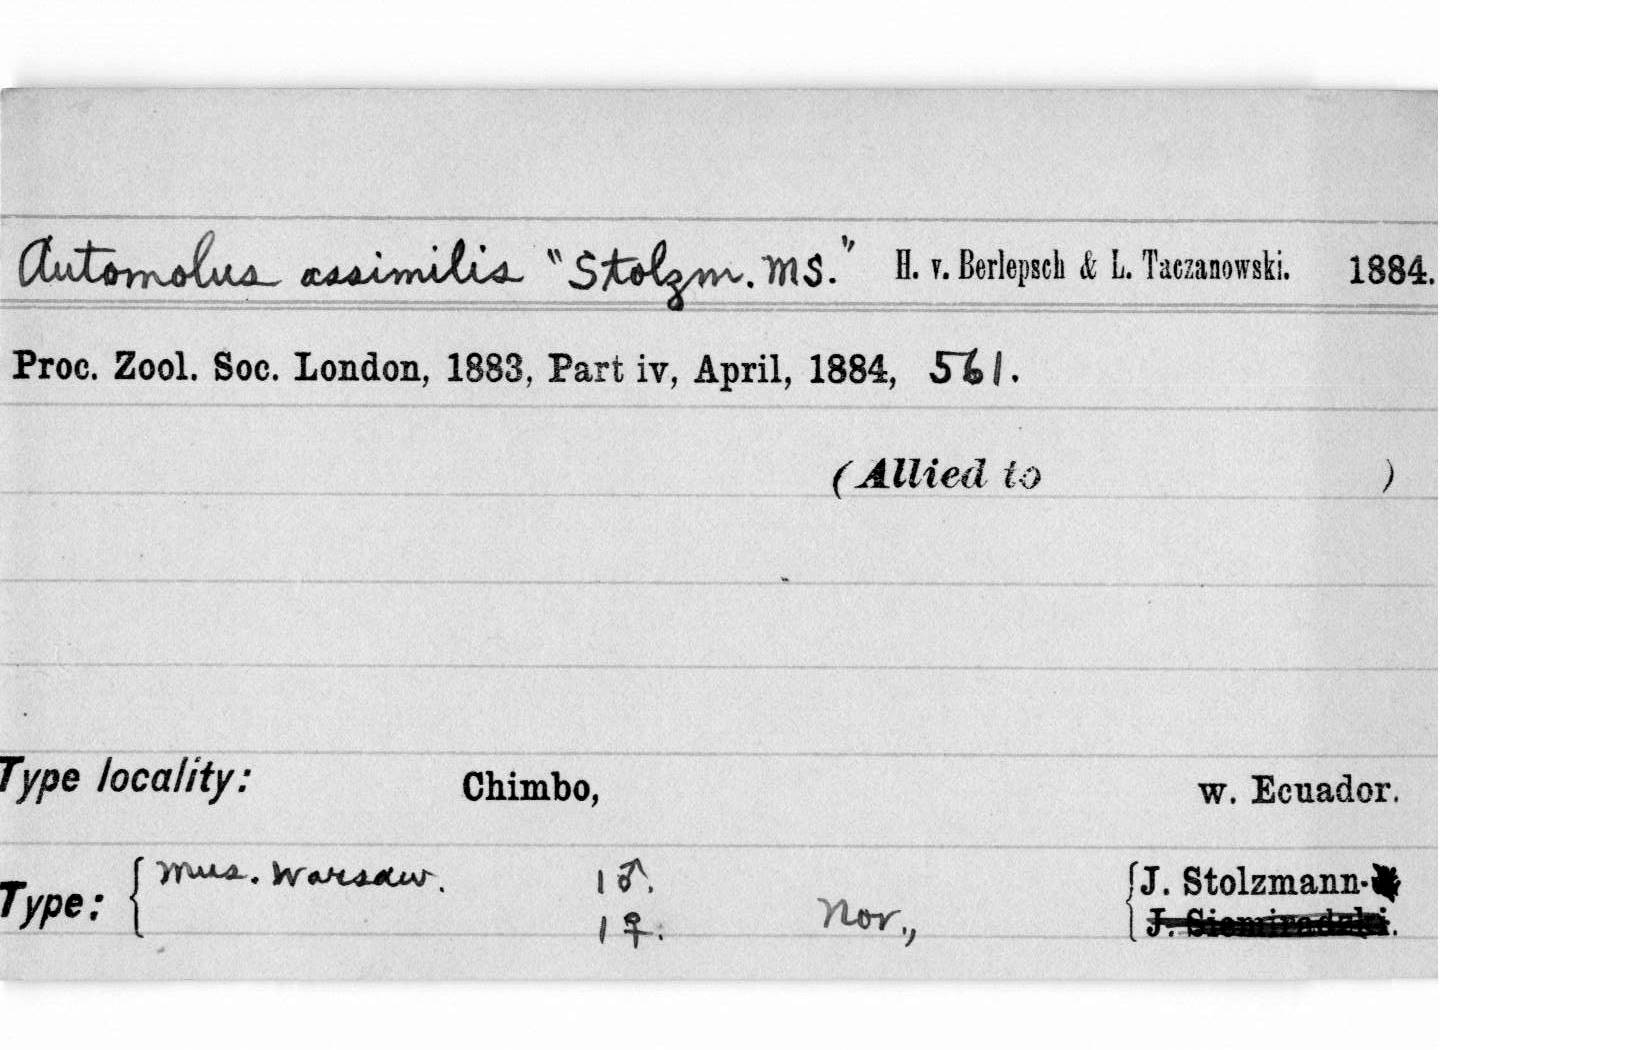 Automolus assimilis "Stolzm. MS." H. v. Berlepsch & L. Taczanowski. 1884.
Proc. Zool. Soc. London, 1883, Part iv, April, 1884, 561.
(Allied to )
Type locality: Chimbo, w. Ecuador.
Type: { Mus. Warsaw. 1 ♂. { J. Stolzmann
1 ♀. Nov., J. Siemiradzki.